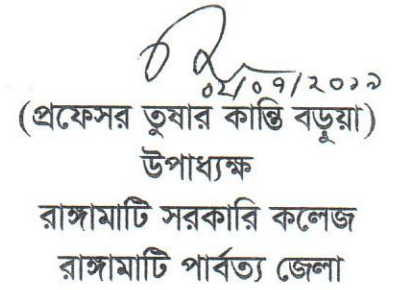 ০২/০৭/২০১৯
(প্রফেসর তুষার কান্তি বড়ুয়া)
উপাধ্যক্ষ
রাঙ্গামাটি সরকারি কলেজ
রাঙ্গামাটি পার্বত্য জেলা